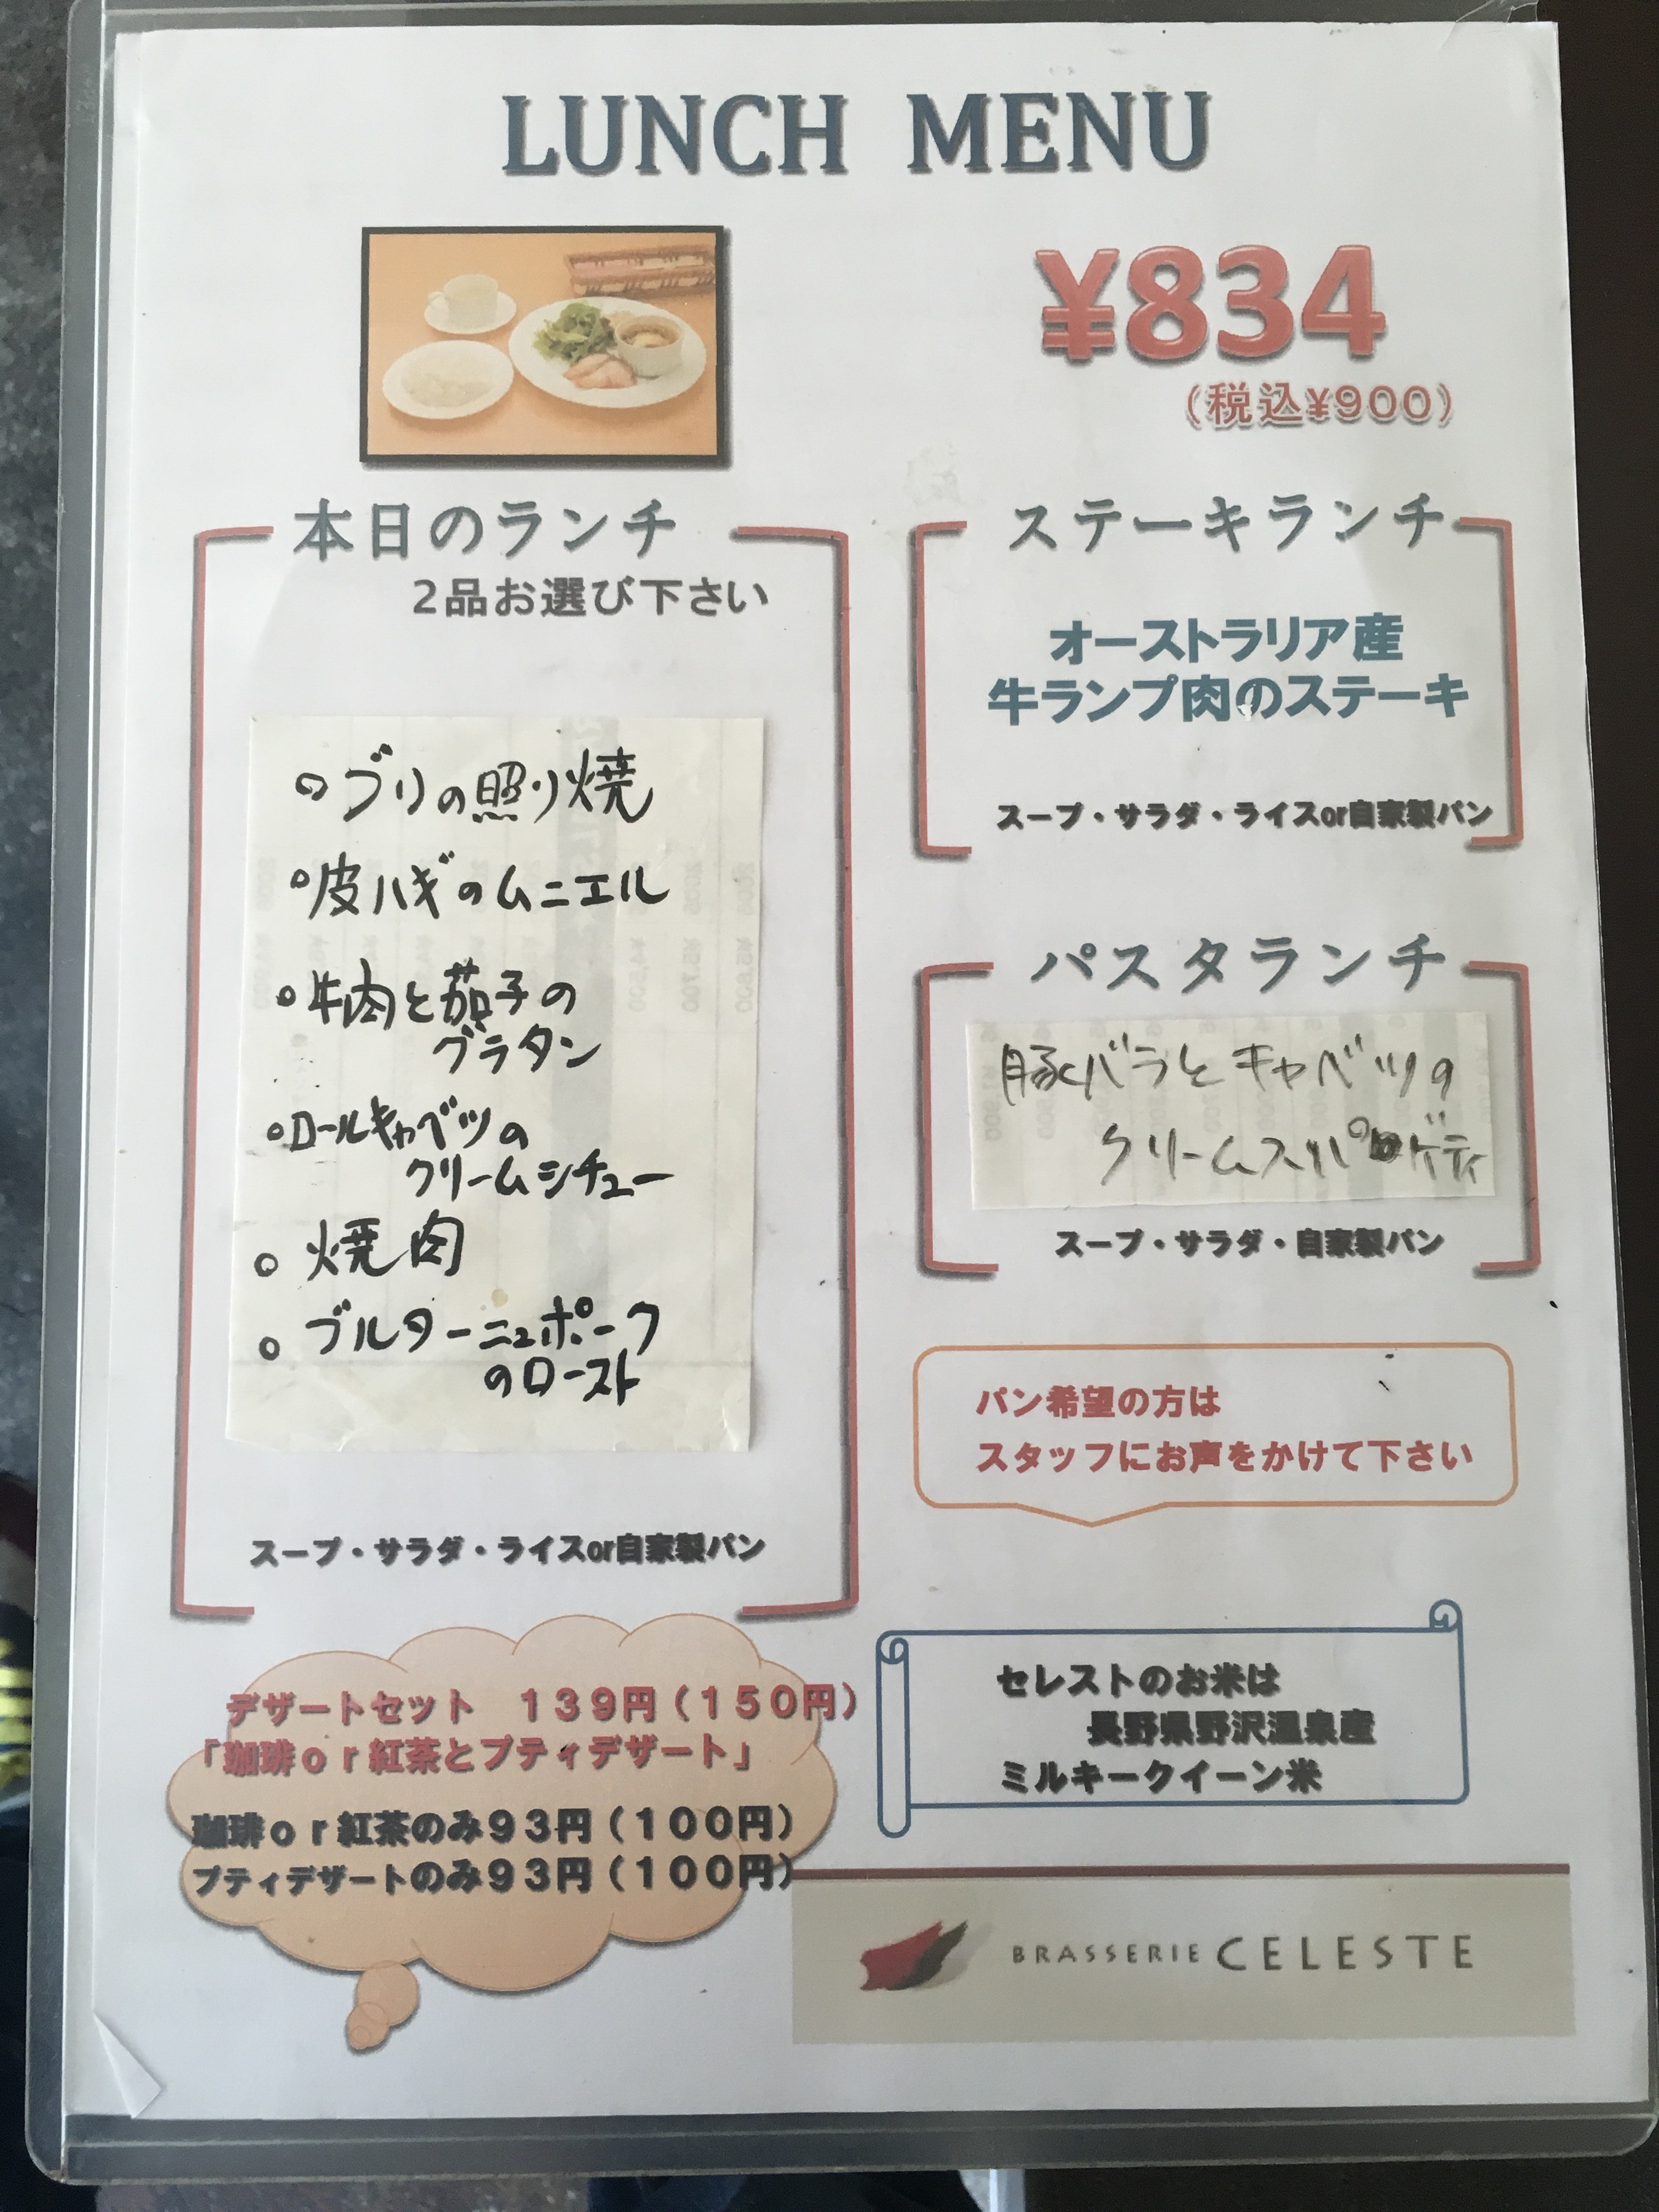 LUNCH MENU
¥834
(税込¥900)
本日のランチ
2品お選び下さい
ブリの照り焼
皮ハギのムニエル
牛肉と茄子の
グラタン
ロールキャベツの
クリームシチュー
焼肉
ブルターニュポーク
のロースト
スープ・サラダ・ライスor自家製パン
ステーキランチ
オーストラリア産
牛ランプ肉のステーキ
スープ・サラダ・ライスor自家製パン
パスタランチ
豚バラとキャベツの
クリームスパゲティ
スープ・サラダ・自家製パン
パン希望の方は
スタッフにお声をかけて下さい
デザートセット 139円(150円)
「珈琲or紅茶とプティデザート」
珈琲or紅茶のみ93円(100円)
プティデザートのみ93円(100円)
セレストのお米は
長野県野沢温泉産
ミルキークイーン米
BRASSERIE CELESTE